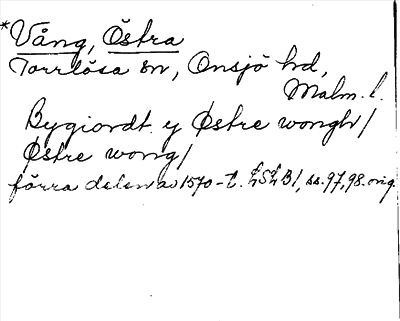 *Vång, Östra
Torrlösa sn, Onsjö hd,
Malm. l.
Bygiordt y Østre wongh/
Østre wong/
förra delen av 1570-t. LSLB1, ss. 97, 98. orig.